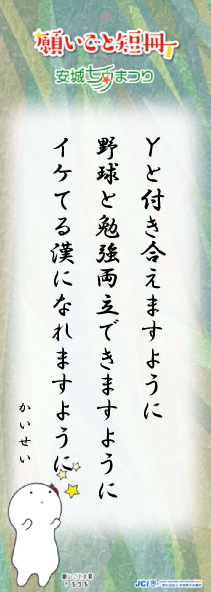 願いごと短冊
安城七夕まつり
Yと付き合えますように
野球と勉強両立できますように
イケてる漢になれますように
かいせい
JCI